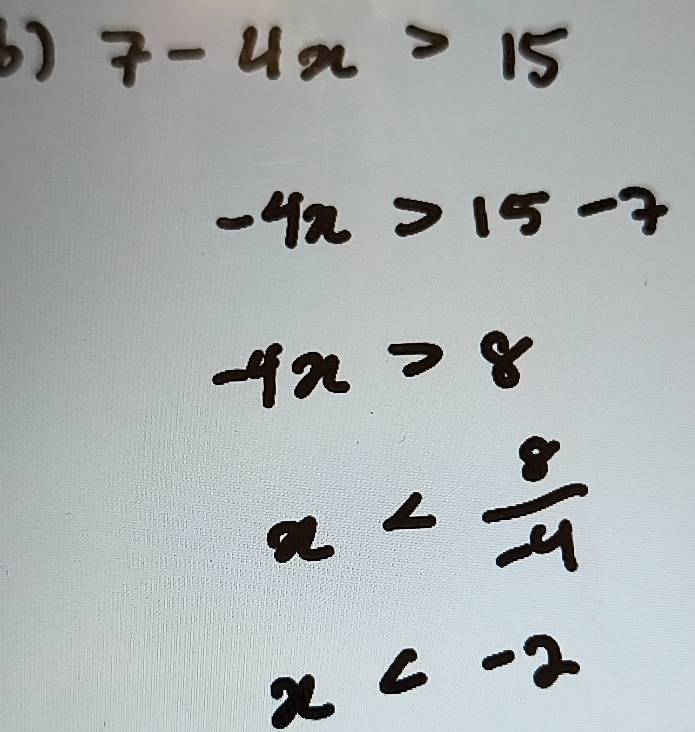 b) 7 - 4x > 15
-4x > 15 - 7
-4x > 8
x < 8/-4
x < -2